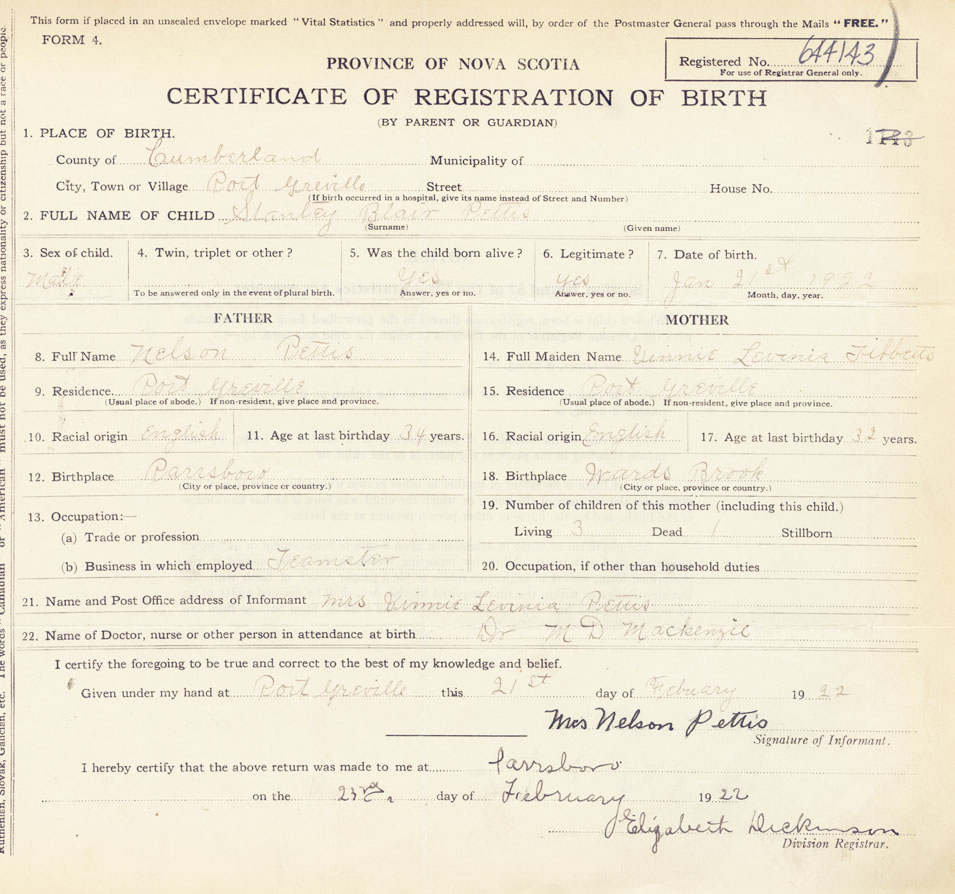 This form if placed in an unsealed envelope marked "Vital Statistics" and properly addressed will, by order of the Postmaster General pass through the Mails "FREE."
FORM 4.
Registered No. 644143
For use of Registrar General only.
PROVINCE OF NOVA SCOTIA
CERTIFICATE OF REGISTRATION OF BIRTH
(BY PARENT OR GUARDIAN)
1. PLACE OF BIRTH.
County of Cumberland Municipality of
City, Town or Village Port Greville Street House No.
(If birth occurred in a hospital, give its name instead of Street and Number)
2. FULL NAME OF CHILD Stanley Blair Pettis
(Surname) (Given name)
3. Sex of child. 4. Twin, triplet or other? 5. Was the child born alive? 6. Legitimate? 7. Date of birth.
Male Yes yes Jan 21st 1922
To be answered only in the event of plural birth. Answer, yes or no. Answer, yes or no. Month, day, year.
FATHER MOTHER
8. Full Name Nelson Pettis 14. Full Maiden Name Vinnie Levinia Tibbetts
9. Residence. Port Greville 15. Residence Port Greville
(Usual place of abode.) If non-resident, give place and province. (Usual place of abode.) If non-resident, give place and province.
10. Racial origin English 11. Age at last birthday 34 years. 16. Racial origin English 17. Age at last birthday 32 years.
12. Birthplace Parrsboro 18. Birthplace Wards Brook
(City or place, province or country.) (City or place, province or country.)
19. Number of children of this mother (including this child.)
13. Occupation:—
(a) Trade or profession Living 3 Dead 1 Stillborn
(b) Business in which employed Teamster 20. Occupation, if other than household duties
21. Name and Post Office address of Informant Mrs Vinnie Levinia Pettis
22. Name of Doctor, nurse or other person in attendance at birth Dr M D Mackenzie
I certify the foregoing to be true and correct to the best of my knowledge and belief.
Given under my hand at Port Greville this 21st day of February 1922
Mrs Nelson Pettis
Signature of Informant.
I hereby certify that the above return was made to me at Parrsboro
on the 23rd day of February 1922
Elizabeth Dickinson
Division Registrar.
Ruthenian, Slovak, Galician, etc. The words "Canadian" or "American" must not be used, as they express nationality or citizenship but not a race or people.